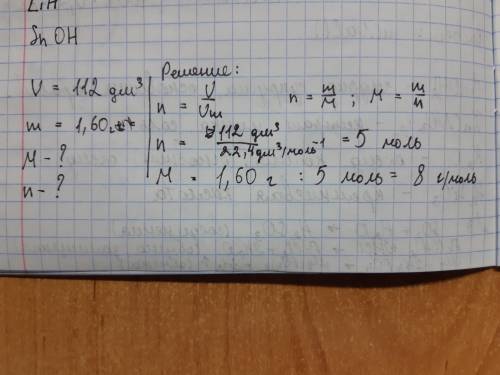 LiH
Sn OH
V = 112 дм³
m = 1,60 г
M - ?
n - ?
Решение:
n = V/Vm
n = m/M ; M = m/n
n = 112 дм³ / 22,4 дм³/моль⁻¹ = 5 моль
M = 1,60 г : 5 моль = 8 г/моль